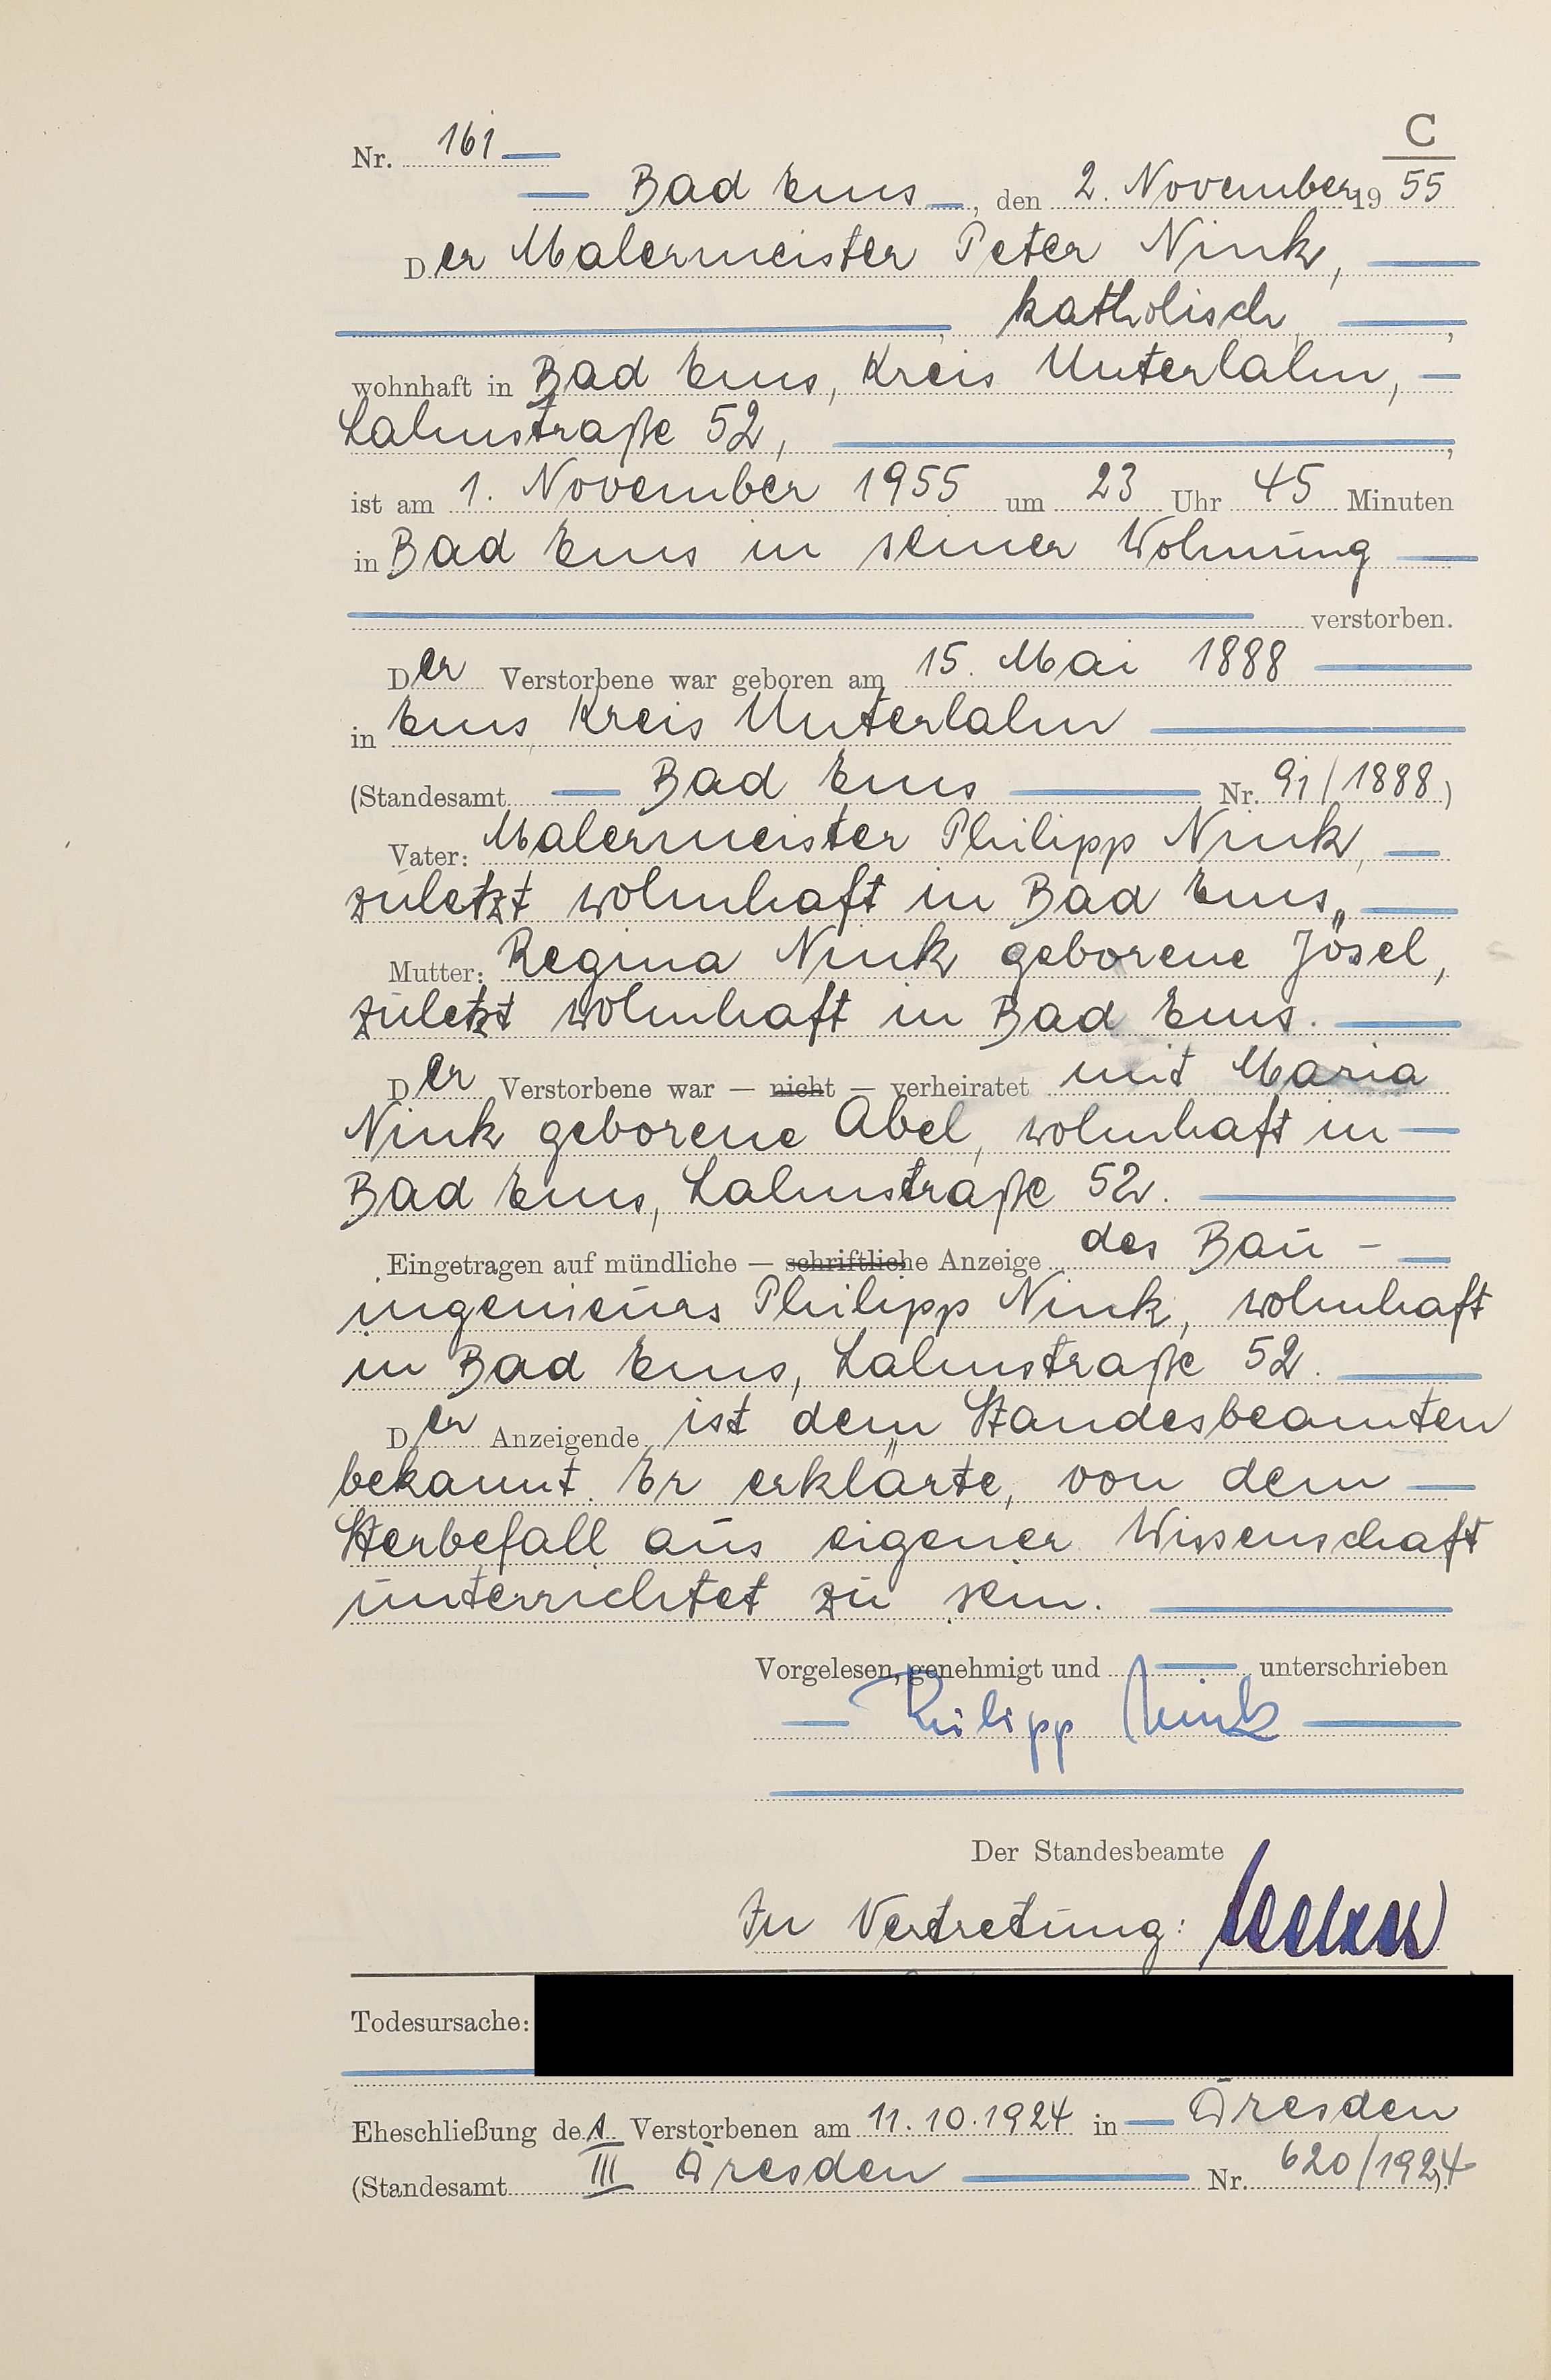 C
Nr. 161
Bad Ems, den 2. November 19 55
Der Malermeister Peter Nink,
katholisch,
wohnhaft in Bad Ems, Kreis Unterlahn,
Lahnstraße 52,
ist am 1. November 1955 um 23 Uhr 45 Minuten
in Bad Ems in seiner Wohnung
verstorben.
Der Verstorbene war geboren am 15. Mai 1888
in Ems, Kreis Unterlahn
(Standesamt Bad Ems Nr. 91/1888)
Vater: Malermeister Philipp Nink,
zuletzt wohnhaft in Bad Ems,
Mutter: Regina Nink geborene Jösel,
zuletzt wohnhaft in Bad Ems.
Der Verstorbene war — nicht — verheiratet mit Maria
Nink geborene Abel, wohnhaft in
Bad Ems, Lahnstraße 52.
Eingetragen auf mündliche — schriftliche Anzeige des Bau-
ingenieurs Philipp Nink, wohnhaft
in Bad Ems, Lahnstraße 52.
Der Anzeigende ist dem Standesbeamten
bekannt. Er erklärte, von dem
Sterbefall aus eigener Wissenschaft
unterrichtet zu sein.
Vorgelesen, genehmigt und unterschrieben
Philipp Nink
Der Standesbeamte
In Vertretung:
Todesursache:
Eheschließung des Verstorbenen am 11.10.1924 in Dresden
(Standesamt III Dresden Nr. 620/1924)